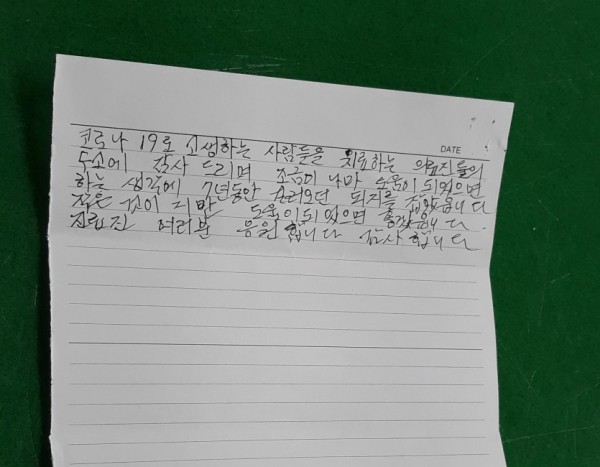 DATE
코로나 19로 고생하는 사람들을 치료하는 의료진들의
노고에 감사 드리며 조금이 나마 도움이 되었으면
하는 생각에 7년동안 돼지를 잡았습니다
작은 것이 지만 도움이 되었으면 좋겠습니다.
의료진 여러분 응원합니다 감사합니다